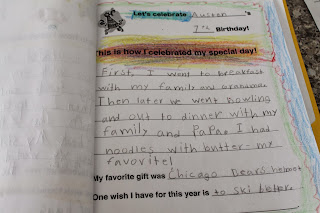 Let's celebrate Austen 's
7th Birthday!
This is how I celebrated my special day!
First, I went to breakfast
with my family and grandma.
Then later we went bowling
and out to dinner with my
family and Papa. I had
noodles with butter- my
favorite!
My favorite gift was Chicago Bears helmet
One wish I have for this year is to ski better.